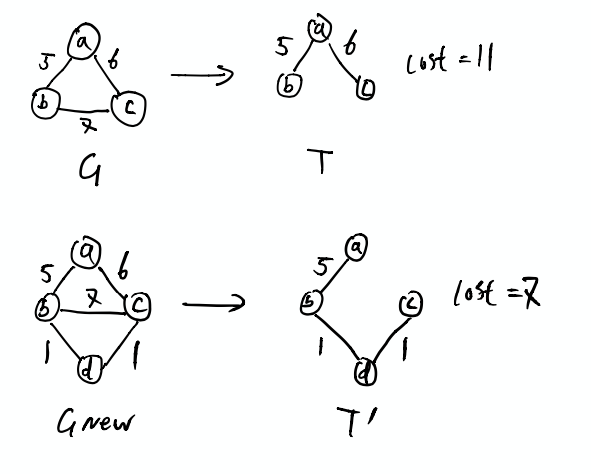 a
5 6
b c
7
G
a
5 6
b c
cost = 11
T
a
5 6
b 7 c
1 1
d
G new
a
5
b c
1 1
d
cost = 7
T'